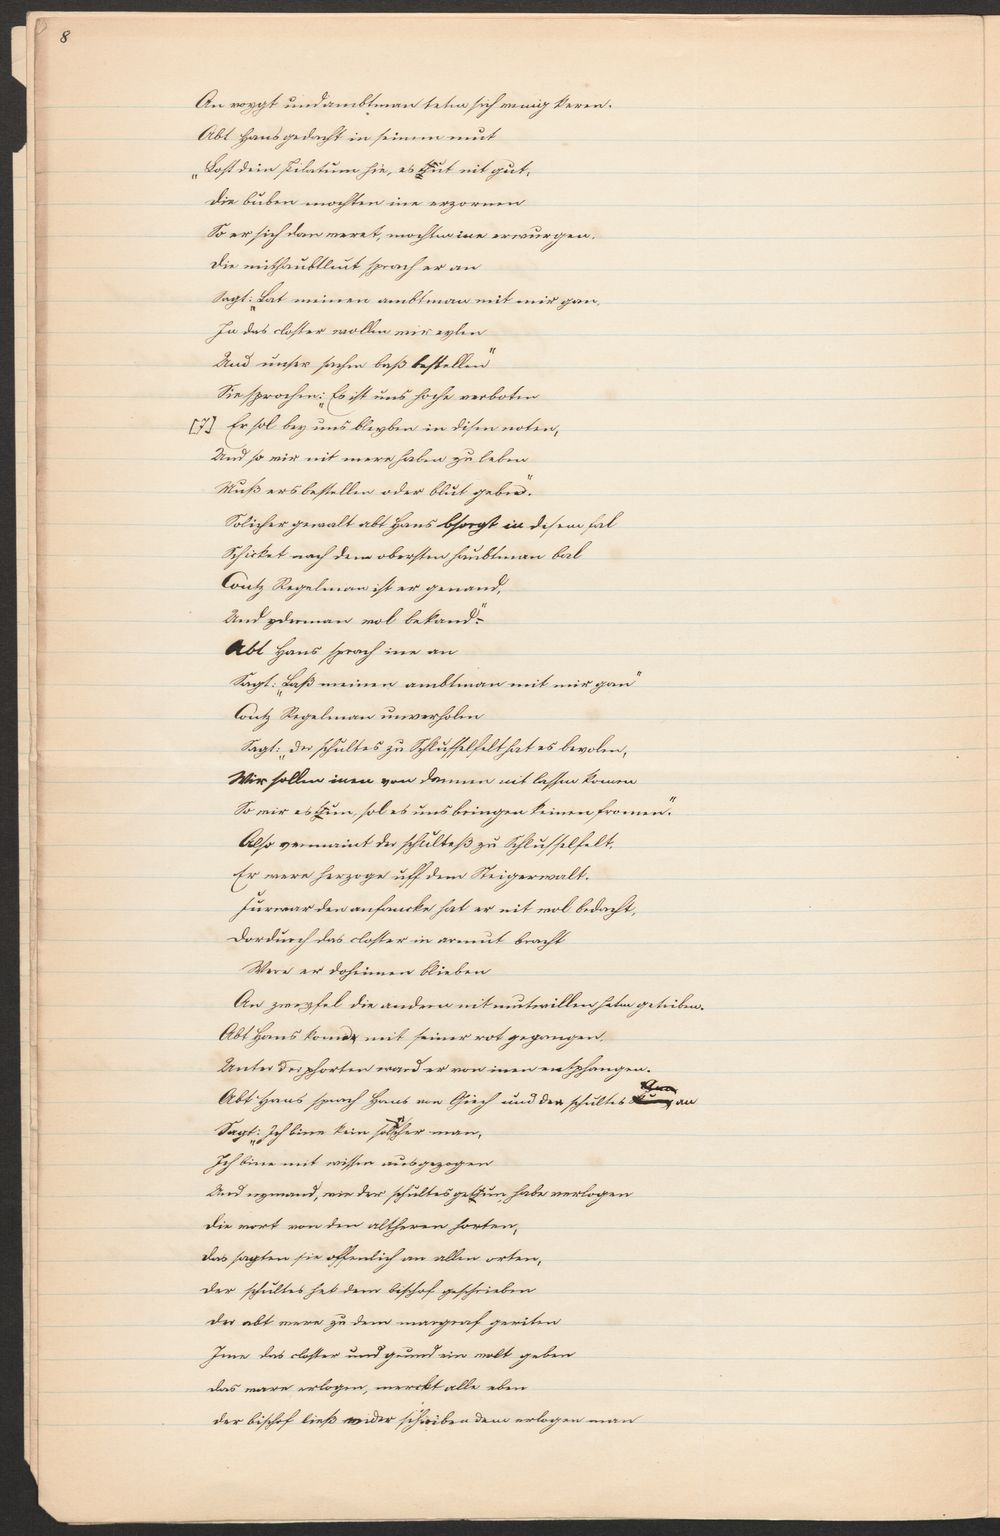 8
An voygt und ambtman teten sich wenig keren.
Abt Hans gedacht in seinem mut
„Lost dein pilatum hie, es thut nit gut,
Die buben mochten ine erzornen
So er sich dan weret, mochten ine erwurgen.
Die mithaubtleut sprach er an
Sagt: „Lat meinen ambtman mit mir gan,
In das closter wollen wir eylen
Und unser sachen baß bestellen"
Sie sprochen: „Es ist uns hoche verboten
[7] Er sol bey uns bleyben in disen noten,
Und so wir nit mere haben zu leben
Muß ers bestellen oder blut geben".
Solicher gewalt abt Hans bsorgt in disem fal
Schicket nach dem obersten haubtman bal
Contz Regelman ist er genand,
Und yderman wol bekand."
Abt Hans sprach ine an
Sagt: „Laß meinen ambtman mit mir gan"
Contz Regelman unverholen
Sagt: „der schultes zu Schlusselfelt hat es bevolen,
Wir sollen inen von dannen nit lassen komen
So wir es thun, sol es uns bringen keinen fromen".
Also vermaint der schulteß zu Schlusselfelt,
Er were herzoge uff dem Steigerwalt.
Furwar den anfancke hat er nit wol bedacht,
Dordurch das closter in armut bracht
Were er doheimen blieben
An zweyfel die andern nit mutwillen heten getriben.
Abt Hans komet mit seiner rot gegangen,
Unter der pforten ward er von inen entpfangen.
Abt Hans sprach Hans von Giech und den schultes an
Sagt: „Ich bine kein solcher man,
Ich bine mit wissen ausgezogen
Und nymand, wie der schultes gethun, habe verlogen
Die wort von den altheren horten,
Das sagten sie offenlich an allen orten,
Der schultes het dem bischof geschrieben
Der abt were zu dem margraf geriten
Ime das closter und grund ein wolt geben
Das ware erlogen, merckt alle eben
Der bischof ließ wider schriben dem erlogen man